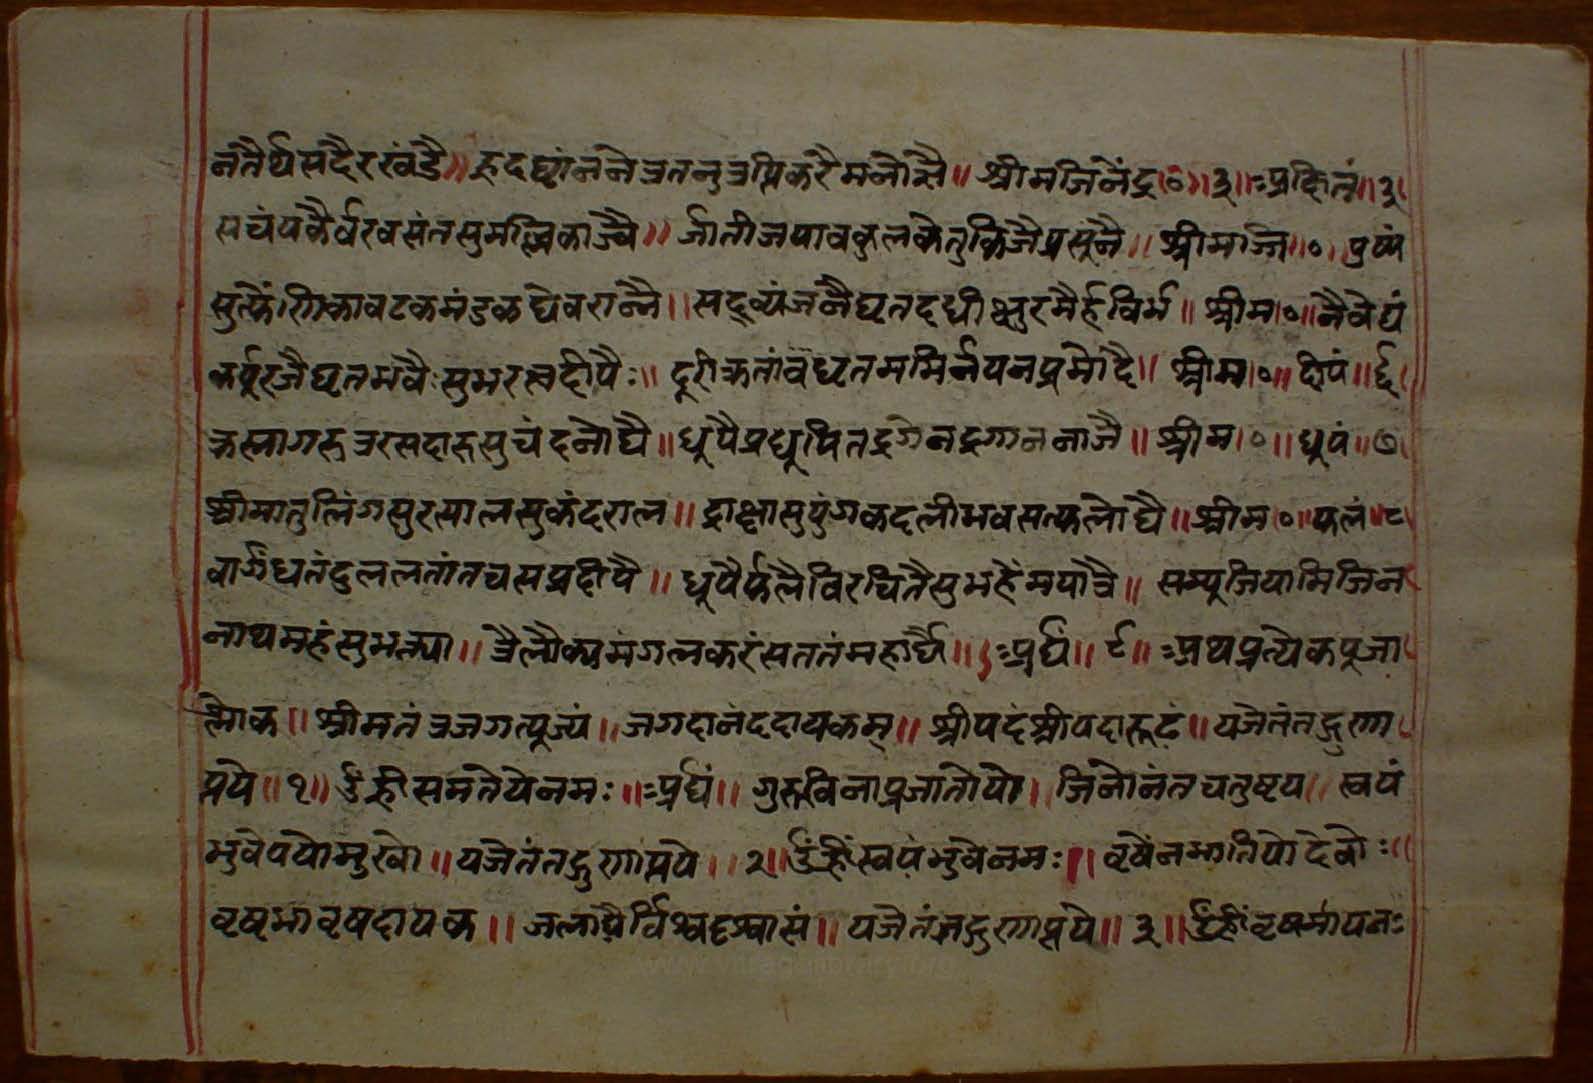 नतैर्थसदैरखंडै॥ हृदघ्रांननेत्रतनुत्रप्तिकरैमनोज्ञै॥ श्रीमजिनेंद्र॥०॥३॥ अक्षितं॥३
सचंपकैर्वरवसंतसुमल्लिकाज्यै॥ र्जातीजपावकुलकेतुकिजैप्रसूनै॥ श्रीमज्जि॥०॥ पुष्पं
सुत्फेंणिकावटकमंडुकघेवरान्नै॥ सद्व्यंजनैघृतदधीक्षुरसैर्हविर्भ॥ श्रीम॥०॥ नैवेद्यं
कर्पूरजैघृतमवैः सुभरत्नदीपैः॥ दूरीक्रतांवघृतममिर्नयनप्रमोदै॥ श्रीम॥०॥ दीपं॥६
क्रस्नागरुत्ररसदारुसुचंदनोघै॥ धूपैप्रधूपितद्रगेनद्रगाननाजै॥ श्रीम॥०॥ धूपं॥७
श्रीमातुलिंगसुरसालसुकंदराल॥ द्राक्षासुपुंगकदलीभवसत्फलोघै॥ श्रीम॥०॥ फलं॥८
वार्गंधतंदुललतांतचसप्रदीपै॥ धूपैर्फलैविरचितैसुभहेमपात्रै॥ सम्पूजियामिजिन
नाथमहंसुभक्त्या॥ त्रैलोक्यमंगलकरंसततंमहार्घै॥ अर्घ॥९॥ अथप्रत्येकपूजा
श्लोक॥ श्रीमतंत्रजगत्पूज्यं॥ जगदानंददायकम्॥ श्रीपदंश्रीपदारूढं॥ यजेतंतद्गुणा
प्तये॥१॥ ॐह्रीसमतेयेनमः॥ अर्घं॥ गुरुविनाप्रजातोयो॥ जिनोनंतचतुष्टय॥ स्वयं
भुवेपयोमुखो॥ यजेतंतद्गुणाप्तये॥२॥ ॐह्रींस्वयंभुवेनमः॥ वृषेंनभातियोदेवोः॥
वृषभावृषदायक॥ जलाद्यैर्विश्वदृश्वासं॥ यजेतंतद्गुणाप्तये॥३॥ ॐह्रींवृषभायनः